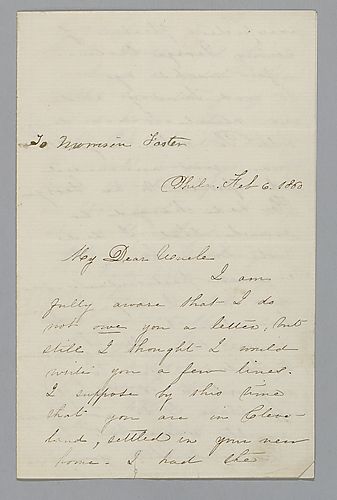 To Morrison Foster
Phila. Feb 6. 1860
My Dear Uncle
I am
fully aware that I do
not owe you a letter, but
still I thought I would
write you a few lines.
I suppose by this time
that you are in Cleve-
land, settled in your new
home - I had the